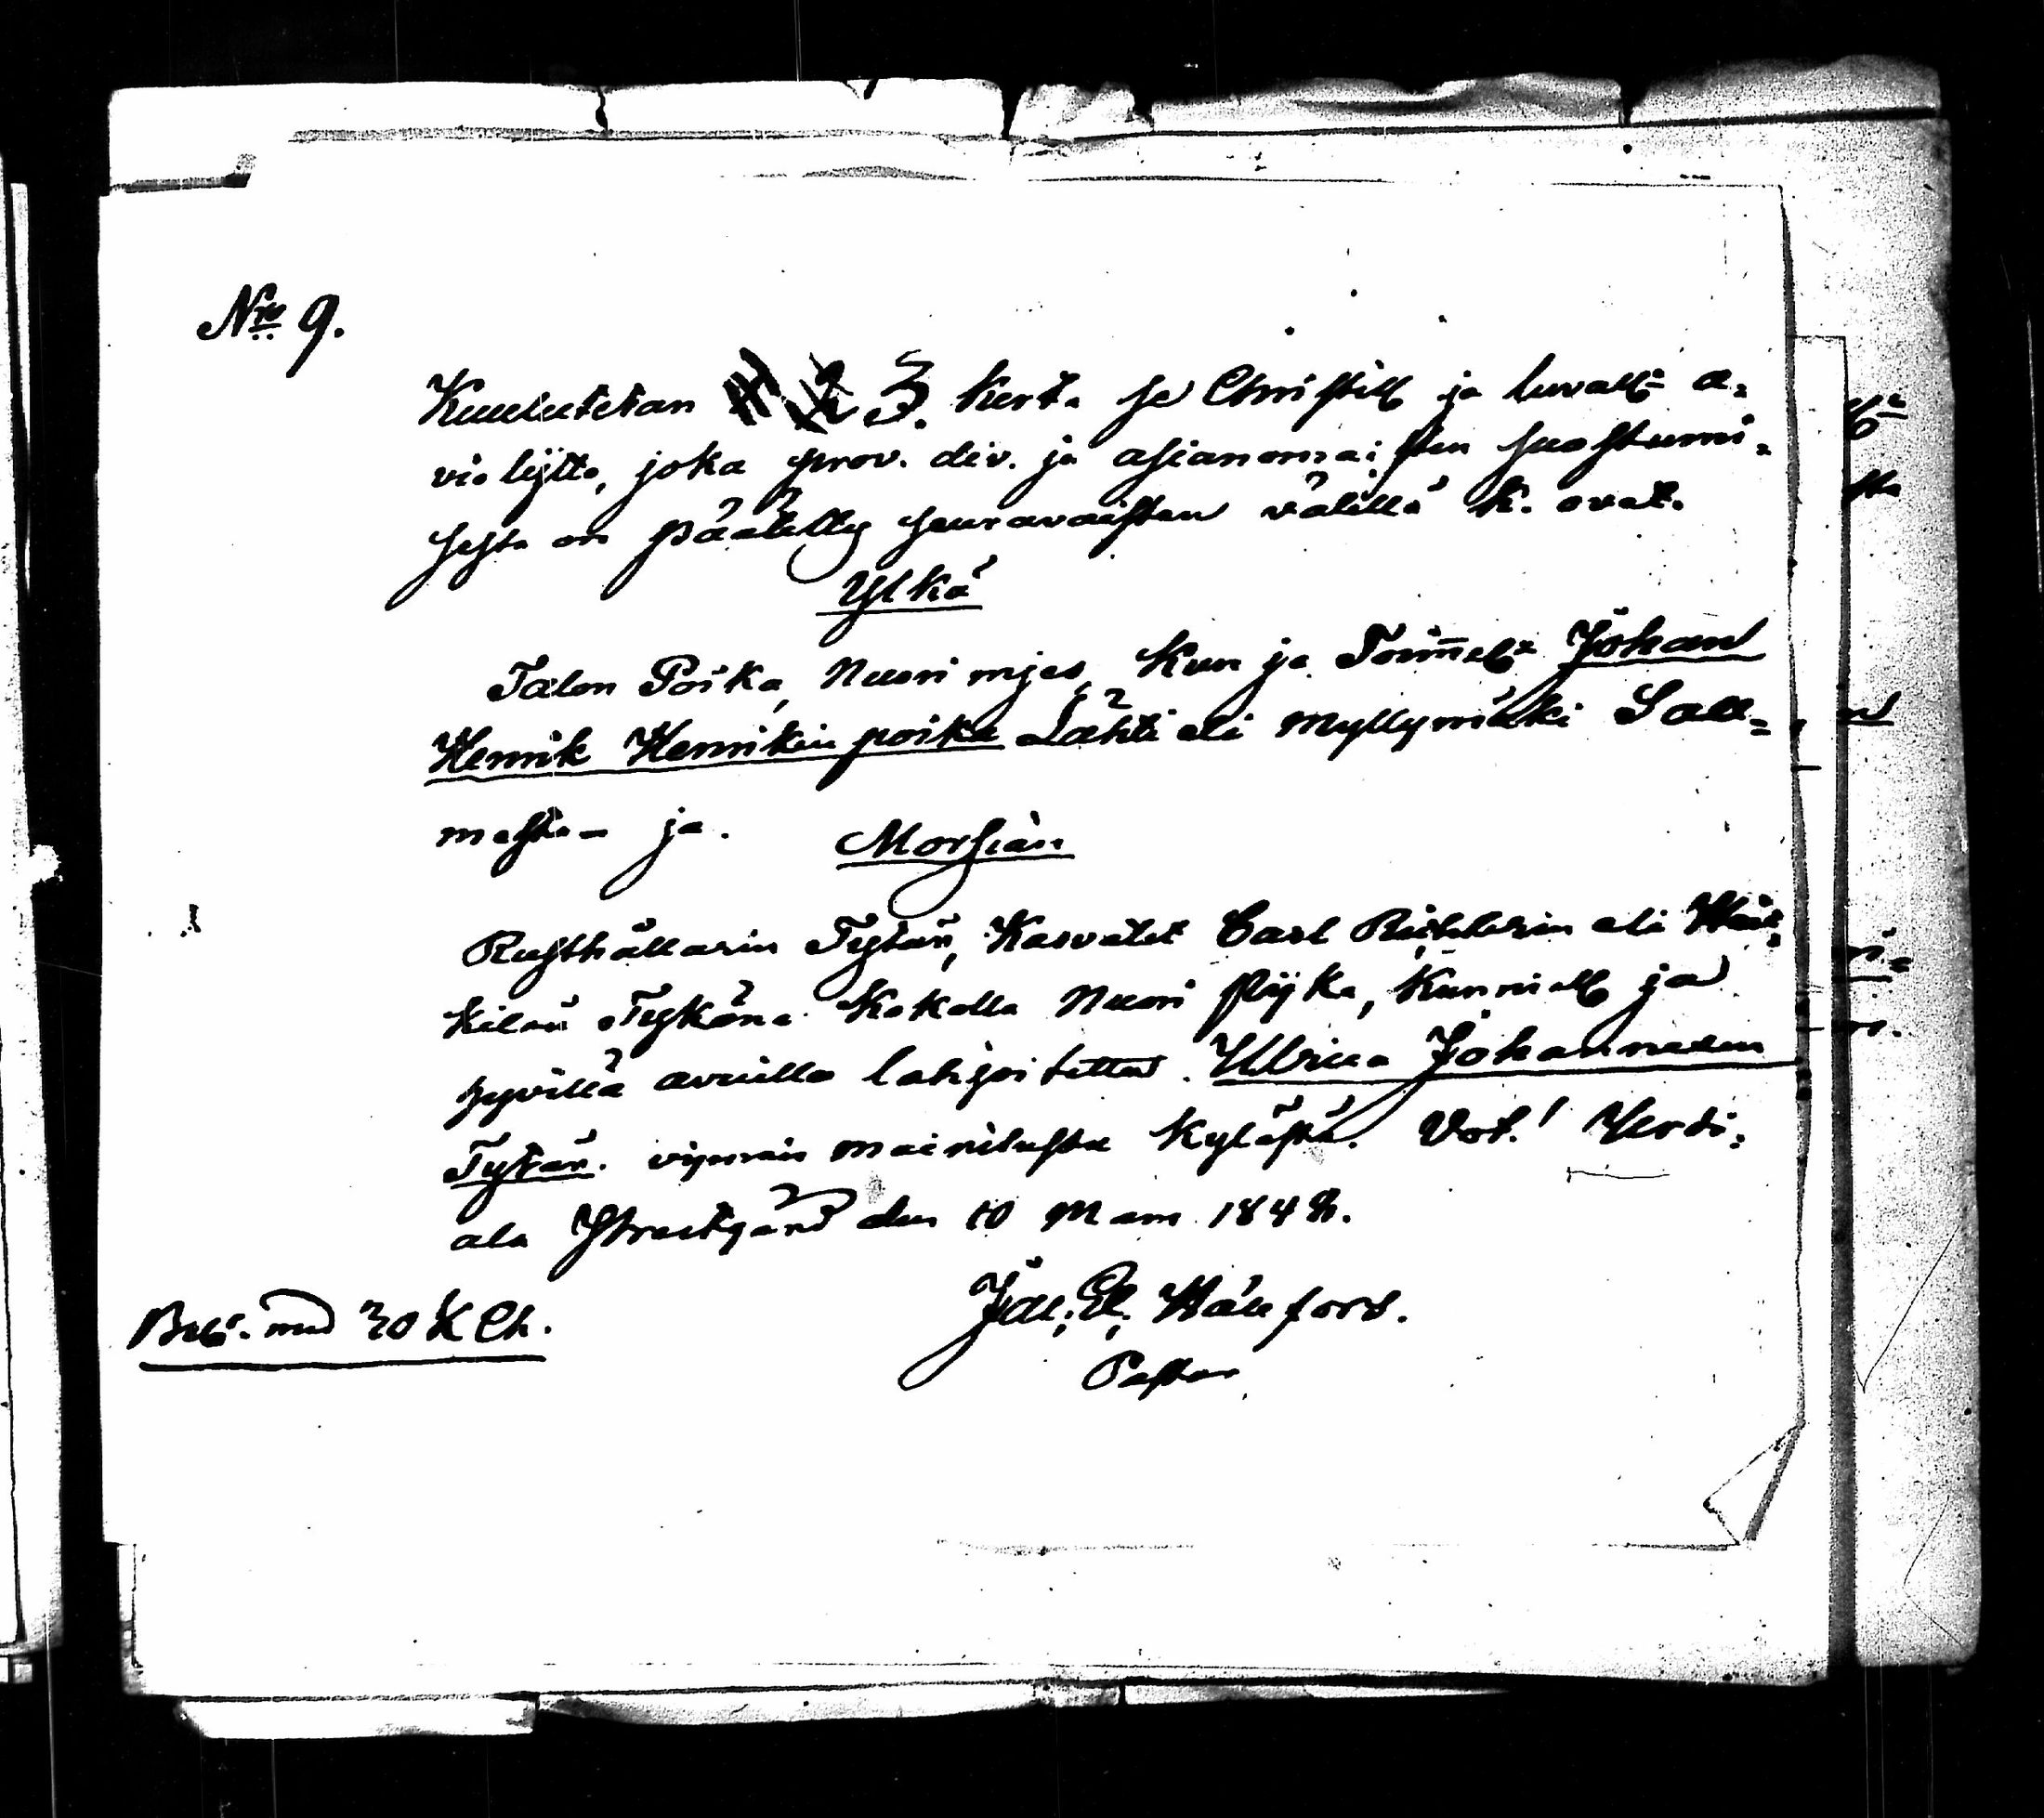 Nro 9.
Kuulutetan 3. Kerta se Christill ja luvall: a=
vio lijtto, joka prov. div. ja asianomaisten suostumi=
sesta on päätetty seuravaisten välillä k. ovat.
Ylkä
Talon Poika, Nuori mjes, Kun ja Toimel: Johan
Henrik Henrikin poika Lähti eli Myllymäki Sall=
mesta - ja.
Morsian
Rusthållarin Tytär, Kasvatet Carl eli Hei=
kilän Tykönä Kokolla Nuori pijka, Kunniall ja
hyvillä avuilla lahjoitettu. Ulrica Johanneksen
Tytär. vijmein mainitusta Kylästä. Vot.!
ala den 10 Mars 1848.
Hällfors.
Pastor
Bet. med 30 K Ch.